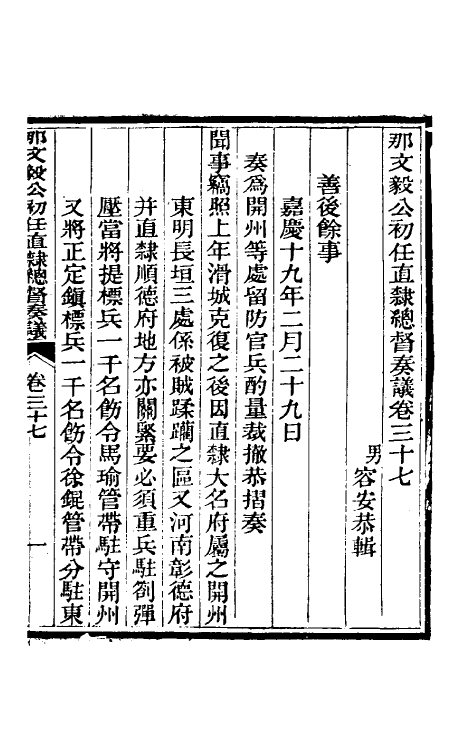 那文毅公初任直隸總督奏議卷三十七
男
容安恭輯
善後餘事
嘉慶十九年二月二十九日
奏爲開州等處留防官兵酌量裁撤恭摺奏
聞事竊照上年滑城克復之後因直隸大名府屬之開州
東明長垣三處係被賊蹂躪之區又河南彰德府
并直隸順德府地方亦關緊要必須重兵駐劄彈
壓當將提標兵一千名飭令馬瑜管帶駐守開州
又將正定鎭標兵一千名飭令徐錕管帶分駐東
那文毅公初任直隸總督奏議
卷三十七
一